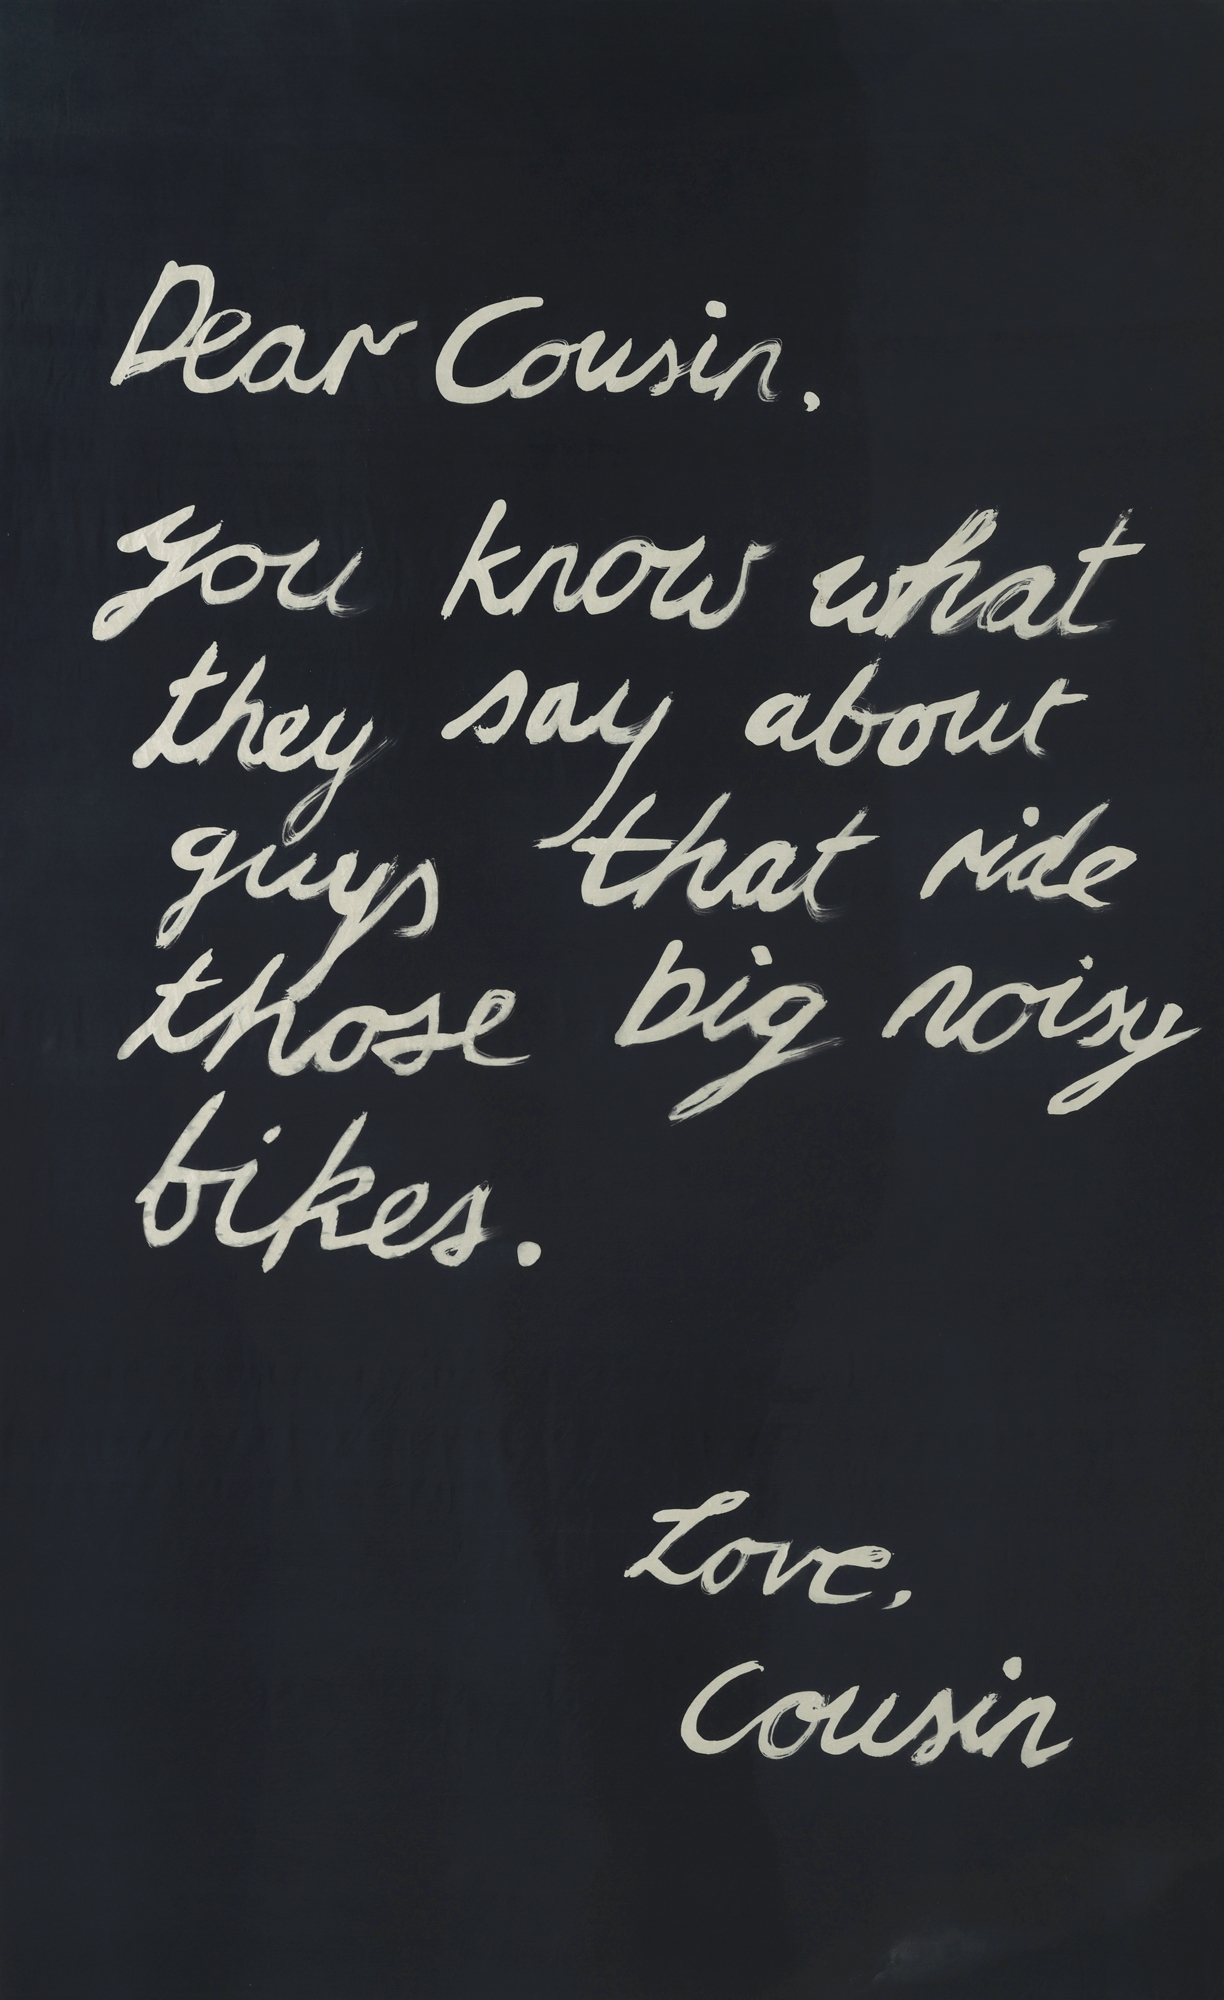 Dear Cousin,
you know what
they say about
guys that ride
those big noisy
bikes.
Love,
Cousin